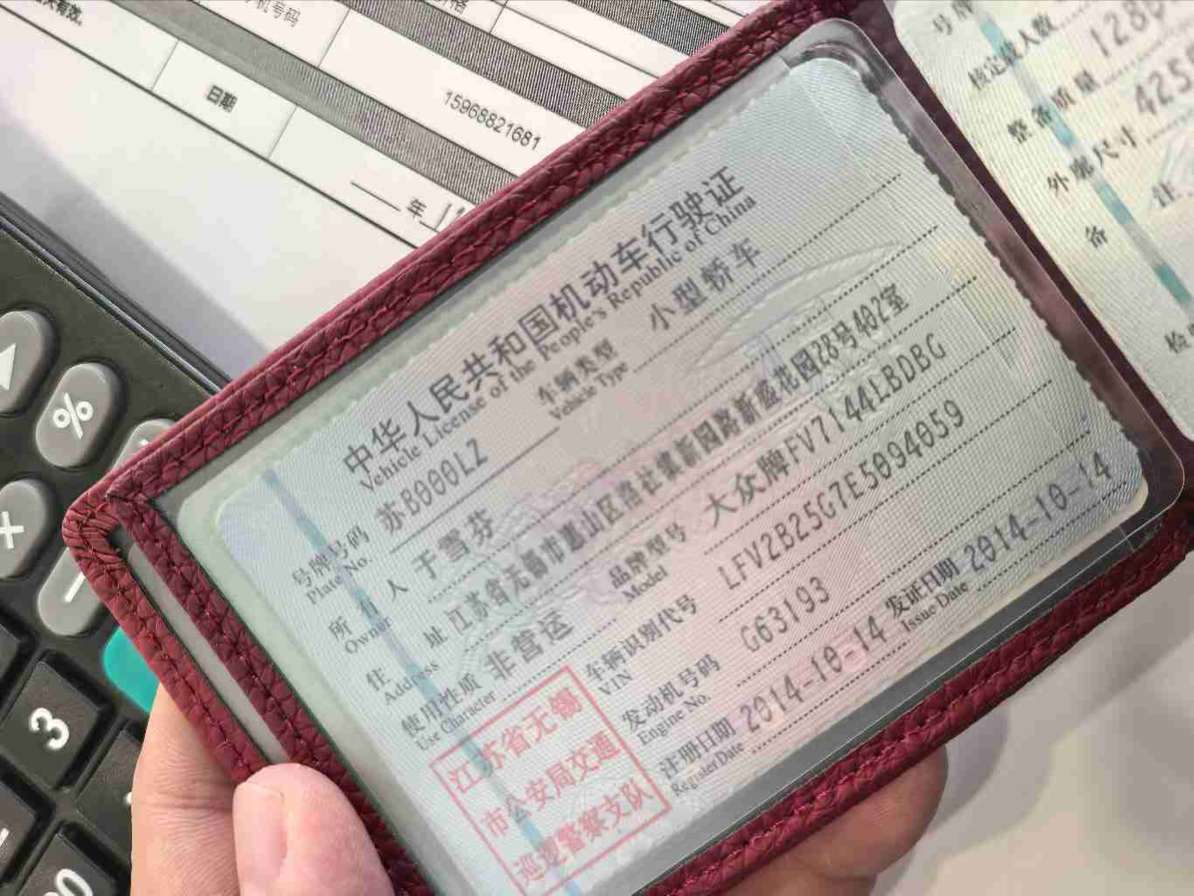 日期
15968821681
年
中华人民共和国机动车行驶证
Vehicle License of the People's Republic of China
号牌号码 苏B000LZ 车辆类型 小型轿车
Plate No. Vehicle Type
所有人 于雪芬
Owner
住址 江苏省无锡市惠山区洛社镇新园路新盛花园28号402室
Address
使用性质 非营运 品牌型号 大众牌FV7144LBDBG
Use Character Model
车辆识别代号 LFV2B25G7E5094059
VIN
发动机号码 G63193
Engine No.
注册日期 2014-10-14 发证日期 2014-10-14
Register Date Issue Date
江苏省无锡
市公安局交通
巡逻警察支队
号牌
核定载人数
整备质量 128
外廓尺寸 425
备
检
%
3